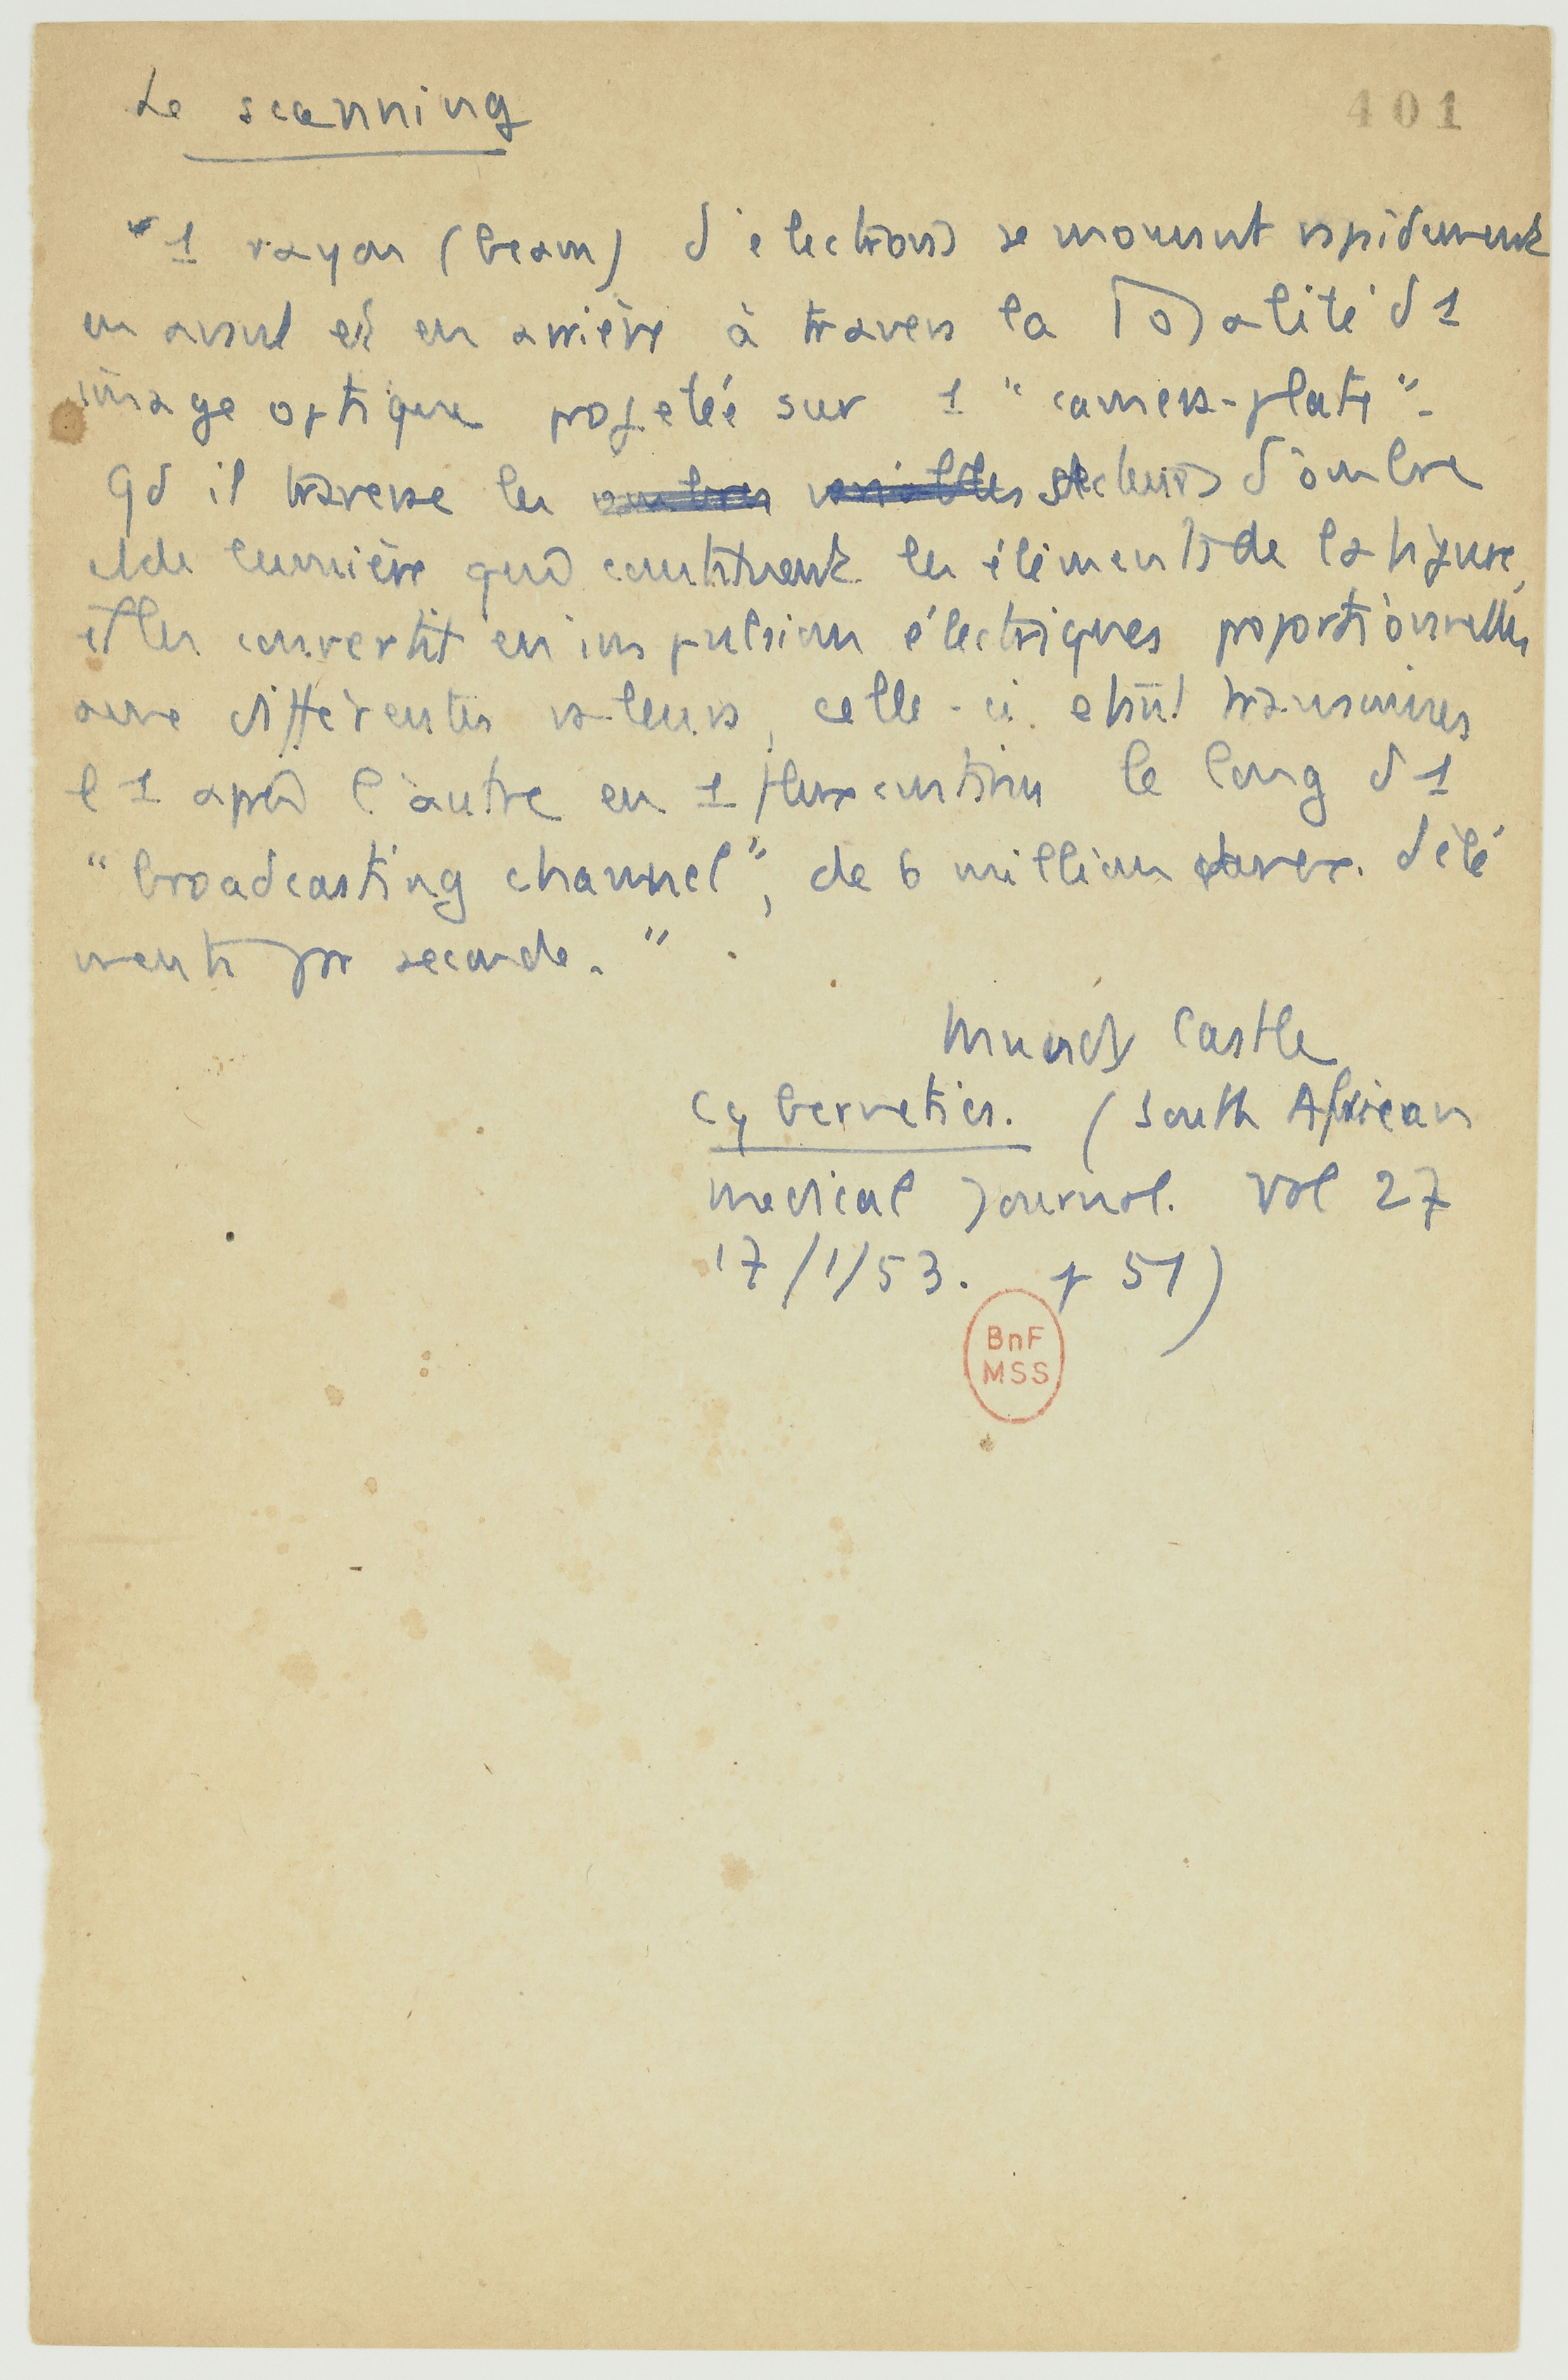 Le scanning
401
"1 rayon (beam) d'électrons se mouvant rapidement
en avant et en arrière à travers la totalité d 1
image optique projetée sur 1 "camera-plate".
Qd il traverse les secteurs d'ombre
et de lumière qui constituent les éléments de la figure,
il les convertit en impulsions électriques proportionnelles
aux différentes valeurs, celle-ci étant transmises
l 1 après l'autre en 1 flux continu le long d 1
"broadcasting channel", de 6 millions d'élé
ments pr seconde."
Mundy Castle
Cybernetics. (South African
medical Journal. Vol 27
17/1/53. p 51)
BnF
MSS